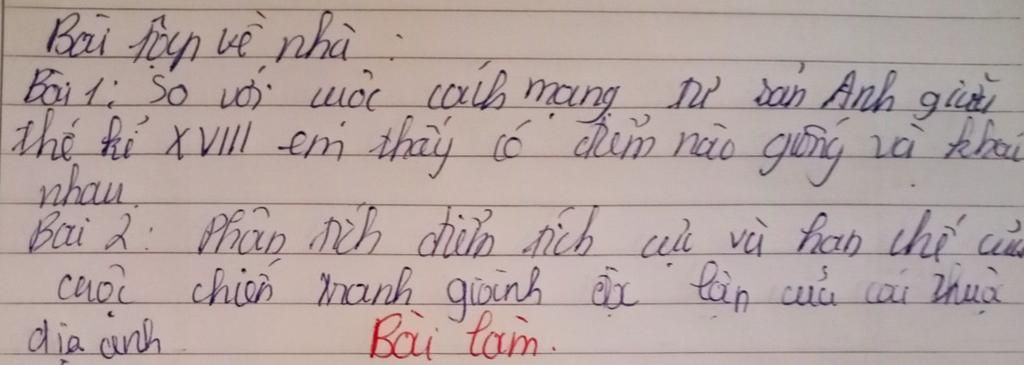 Bài tập về nhà :
Bài 1: So với cuộc cách mạng tư sản Anh giữa
thế kỉ XVIII em thấy có điểm nào giống và khác
nhau.
Bài 2: Phân tích điểm tích cực và hạn chế của
cuộc chiến tranh giành độc lập của các thuộc
địa anh
Bài làm.